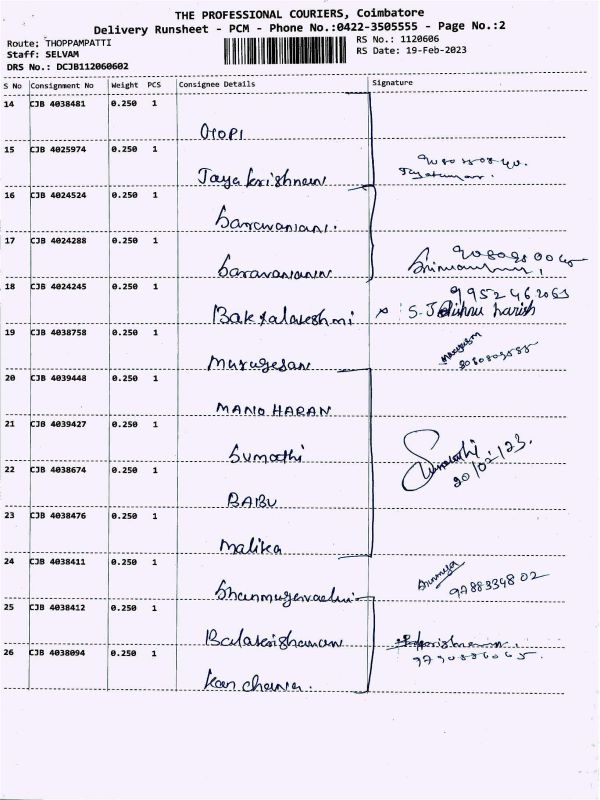 THE PROFESSIONAL COURIERS, Coimbatore
Delivery Runsheet - PCM - Phone No.:0422-3505555 - Page No.:2
Route: THOPPAMPATTI
Staff: SELVAM
DRS No.: DCJB112060602
RS No.: 1120606
RS Date: 19-Feb-2023
S No Consignment No Weight PCS Consignee Details Signature
14 CJB 4038481 0.250 1
GOPI
15 CJB 4025974 0.250 1
Jaya krishnan
16 CJB 4024524 0.250 1
17 CJB 4024288 0.250 1
18 CJB 4024245 0.250 1 9952462063
19 CJB 4038758 0.250 1
Murugesan
20 CJB 4039448 0.250 1
MANO HARAN
21 CJB 4039427 0.250 1
Sumathi Sumathi
20/02/23.
22 CJB 4038674 0.250 1
BABU
23 CJB 4038476 0.250 1
Malika
24 CJB 4038411 0.250 1
9788334802
25 CJB 4038412 0.250 1
26 CJB 4038094 0.250 1